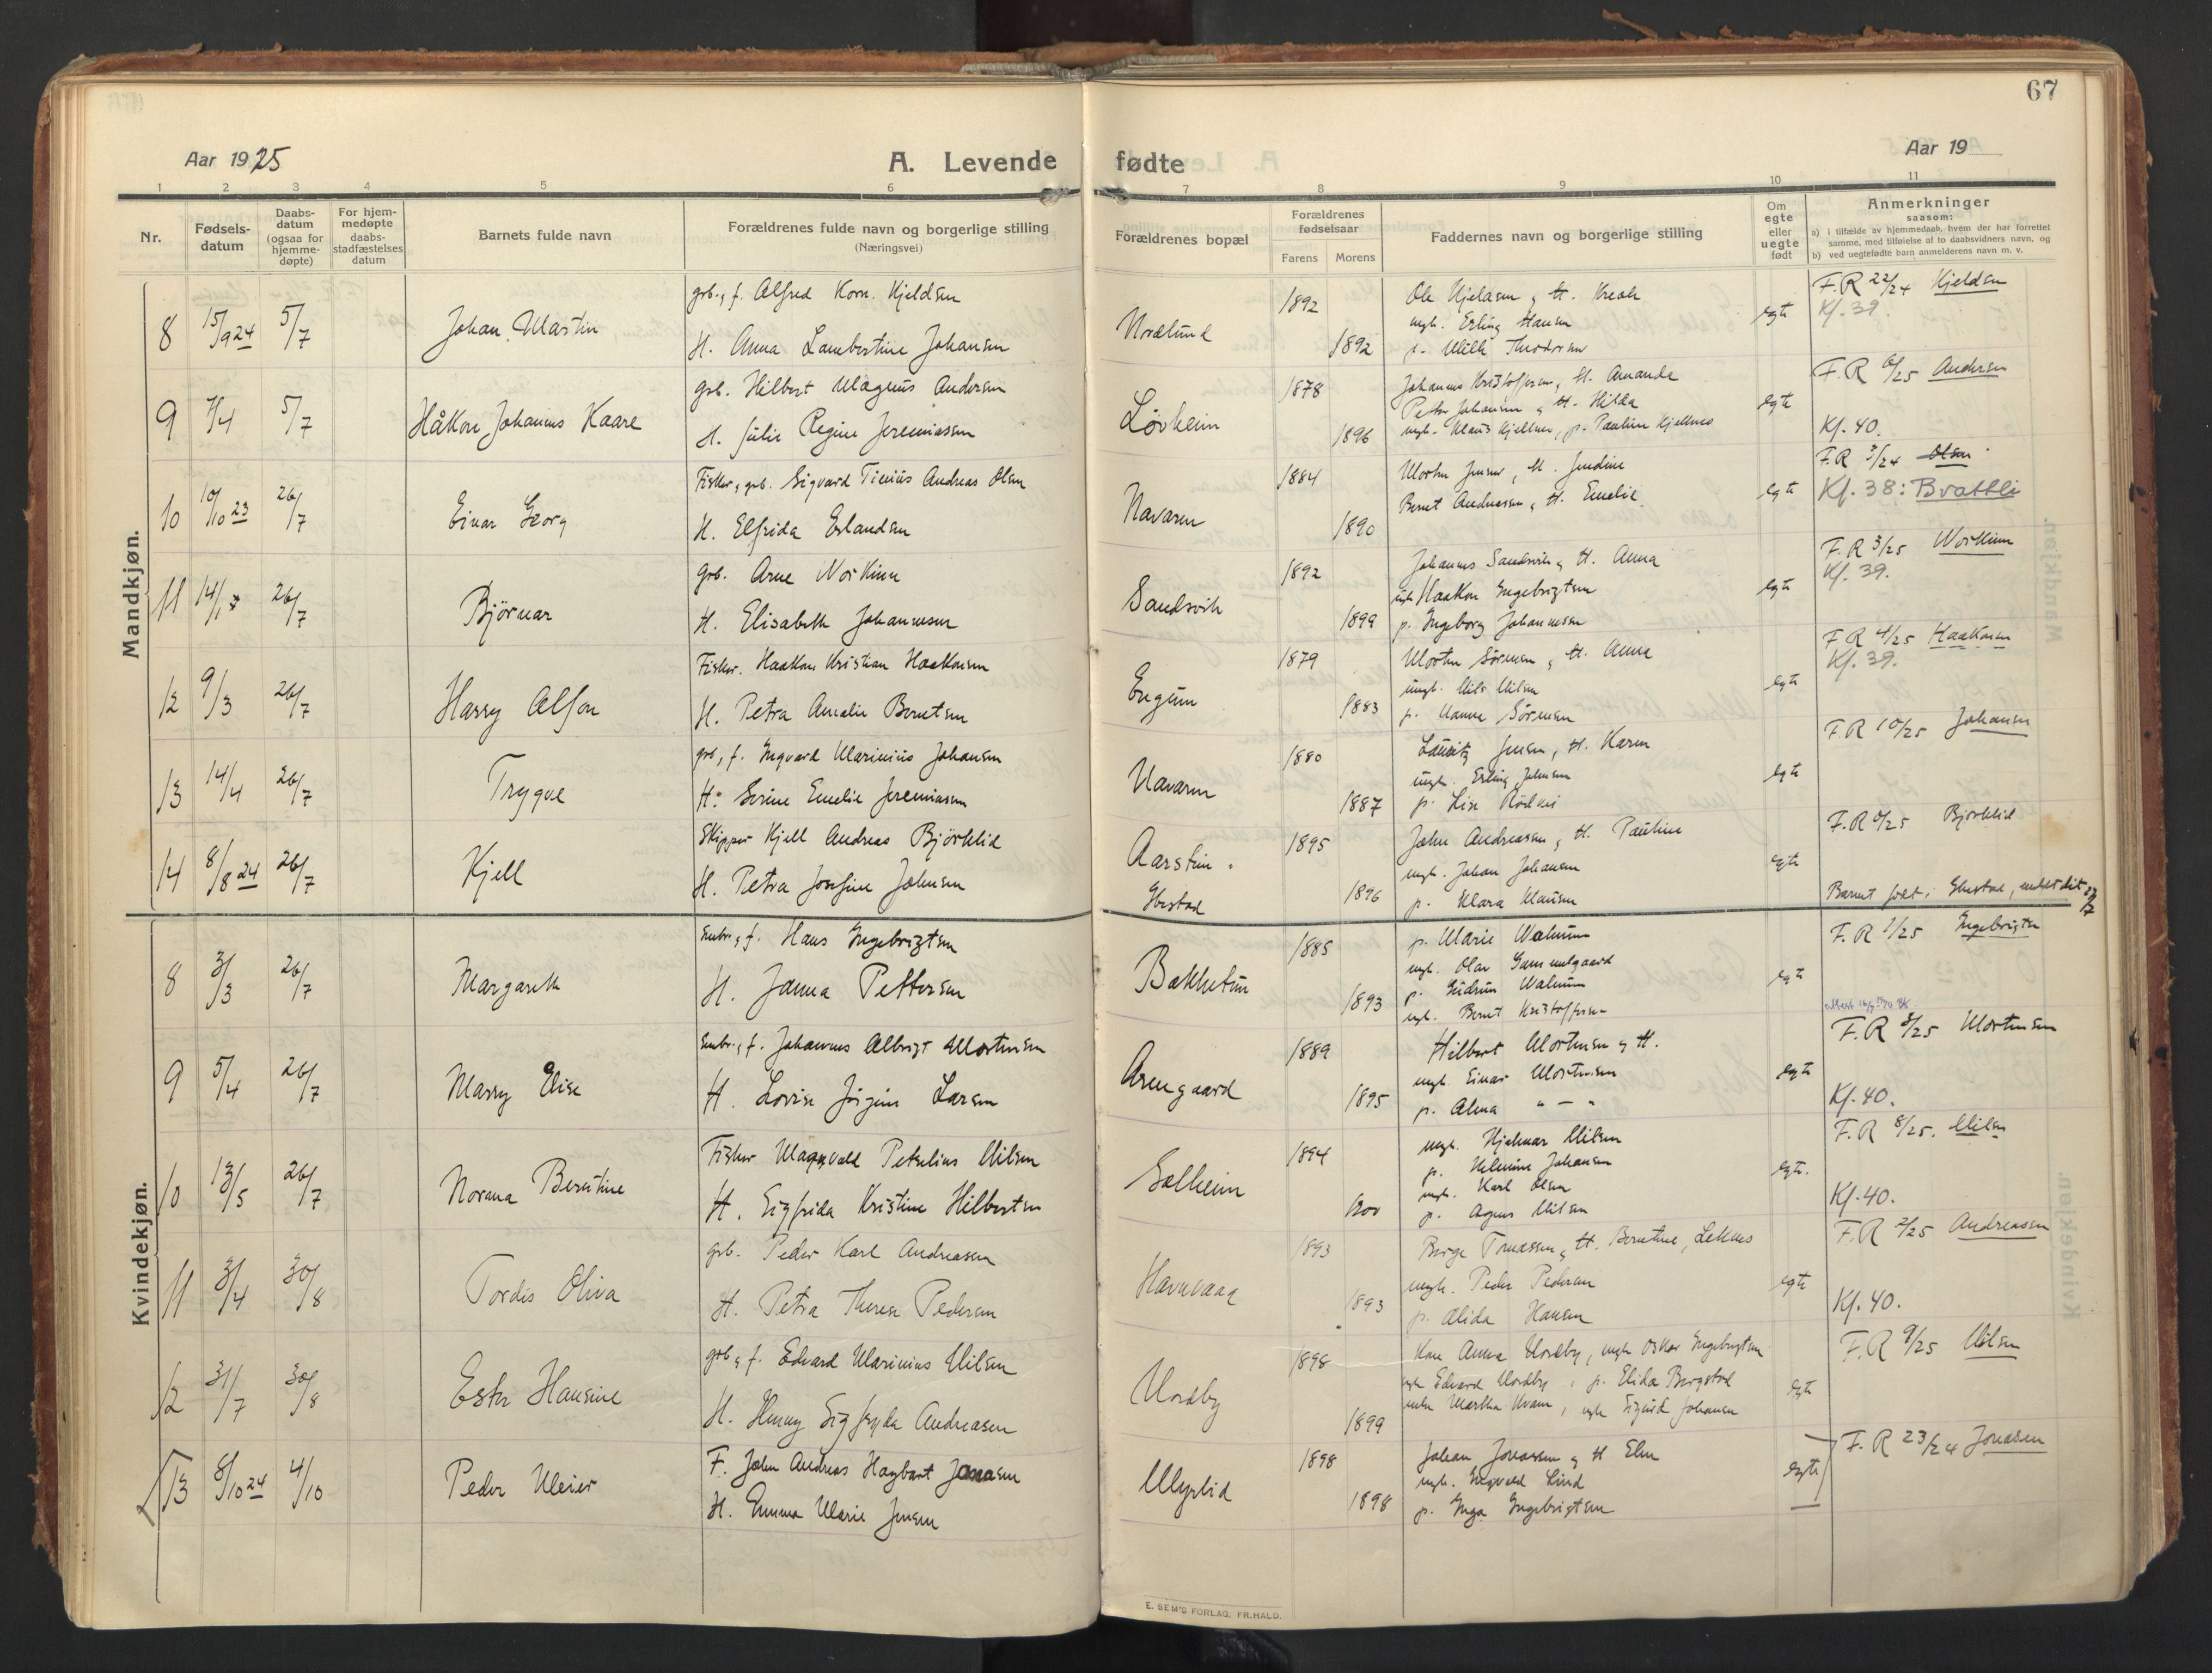 67
Aar 1925
A. Levende fødte
Aar 19
1 2 3 4 5 6 7 8 9 10 11
Nr.
Fødsels-
datum
Daabs-
datum
(ogsaa for
hjemme-
døpte)
For hjem-
medøpte
daabs-
stadfæstelses
datum
Barnets fulde navn
Forældrenes fulde navn og borgerlige stilling
(Næringsvei)
Forældrenes bopæl
Forældrenes
fødselsaar
Farens Morens
Faddernes navn og borgerlige stilling
Om
egte
eller
uegte
født
Anmerkninger
saasom:
a) i tilfælde av hjemmedaab, hvem der har forrettet
samme, med tilføielse af to daabsvidners navn, og
b) ved uegtefødte barn anmelderens navn m. v.
Mandkjøn.
8 15/9 24 5/7 Johan Martin
grb. & f. Alfred Korn. Kjeldsen
H. Anna Lambertine Johansen
1892
1892
ungk. Erling Hansen
egte
F.R 22/24 Kjeldsen
Kf. 39.
9 7/4 5/7 Håkon Johannes Kaare
grb. Hilbert Magnus Andersen
H. Julie Regine Jeremiassen
Løvheim
1878
1896
Johannes Kristoffersen, H. Amanda
Peter Johansen & H. Hilda
ungk. Klaus Kjellnes, p. Pauline Kjellnes
egte
F.R 6/25 Andersen
Kf. 40.
10 10/10 23 26/7 Einar Georg
Fisker, grb. Sigvard Tinius Andreas Olsen
H. Elfrida Erlandsen
Navaren
1884
1890
Morten Jensen, H. Jendine
Bernt Andreassen, H. Emelie
egte
F.R 3/24 Olsen
Kf. 38: Brattli
11 14/1 26/7 Bjørnar
grb. Arne Norkinn
H. Elisabeth Johannesen
Sandsvik
1892
1899
Johannes Sandsvik, H. Anna
ungk Haakon Engebrigtsen
p. Ingeborg Johannessen
egte
F.R 3/25 Norkinn
Kf. 39.
12 9/3 26/7 Harry Alfon
Fisker. Haakon Kristian Haakonsen
H. Petra Amalie Berntsen
Engum
1879
1883
Morten Sørensen, H. Anna
ungk. Nils Nilsen
p. Hanna Sørensen
egte
F.R 4/25 Haakonsen
Kf. 39.
13 14/4 26/7 Trygve
grb, f. Ingvard Marinius Johansen
H. Serine Emelie Jeremiassen
Navaren
1880
1887
Lauritz Jensen, H. Karen
ungk. Erling Johnsen
egte
F.R 10/25 Johansen
14 8/8 24 26/7 Kjell
Skipper Kjell Andreas Bjørklid
H. Petra Josefine Johnsen
Ibestad
1895
1896
John Andreassen, H. Pauline
ungk. Johan Johansen
p. Klara Klausen
egte
F.R 6/25 Bjørklid
Kvindekjøn.
8 3/3 26/7 Margareth
Smbr. & f. Hans Engebrigtsen
H. Janna Pettersen
Bakketun
1885
1893
p. Marie Walnum
ungk. Olav Gammelgaard
p. Gudrun Walnum
ungk. Bernt Kristoffersen
egte
F.R 1/25 Engebrigtsen
9 5/4 26/7 Marry Elise
Smbr. & f. Johannes Albrigt Mortensen
H. Lovise Jørgine Larsen
Arengaard
1889
1895
Hilbert Mortensen & H.
ungk. Einar Mortensen
p. Alma " - "
egte
F.R 3/25 Mortensen
Kf. 40.
10 13/5 26/7 Norana Berntine
Fisker Magnvald Petselius Nilsen
H. Sigfrida Kristine Hilbertsen
Solheim
1894
ungk. Hjalmar Nilsen
p. Helmine Johansen
ungk. Karl Olsen
p. Agnes Nilsen
egte.
F.R 8/25. Nilsen
Kf. 40.
11 3/4 30/8 Tordis Oliva
grb. Peder Karl Andreassen
H. Petra Therese Pedersen
Havnvaag
1893
1893
Birge Tomassen, H. Berntine, Leknes
ungk. Peder Pedersen
p. Alida Hansen
egte
F.R 2/25 Andreassen
Kf. 40.
12 31/7 30/8 Ester Hansine
grb & f. Edvard Marinius Nilsen
H. Henny Sigfryda Andreasen
Nordby
1898
1899
Kone Anna Nordby, ungk Oskar Engebrigtsen
ungk Edvard Nordby, p. Elida Bergstad
enke Martha Kvam, ungk Sigurd Johansen
egte
F.R 9/25 Nilsen
13 8/10 24 4/10 Peder Meier
F. John Andreas Hagbart Jonasen
H. Emma Marie Jensen
Myrlid
1898
1898
Johan Jonassen & H Elen
ungk. Ingvald Lind
p. Inga Engebrigtsen
egte
F.R 23/24 Jonasen
E. SEM'S FORLAG, FR.HALD.